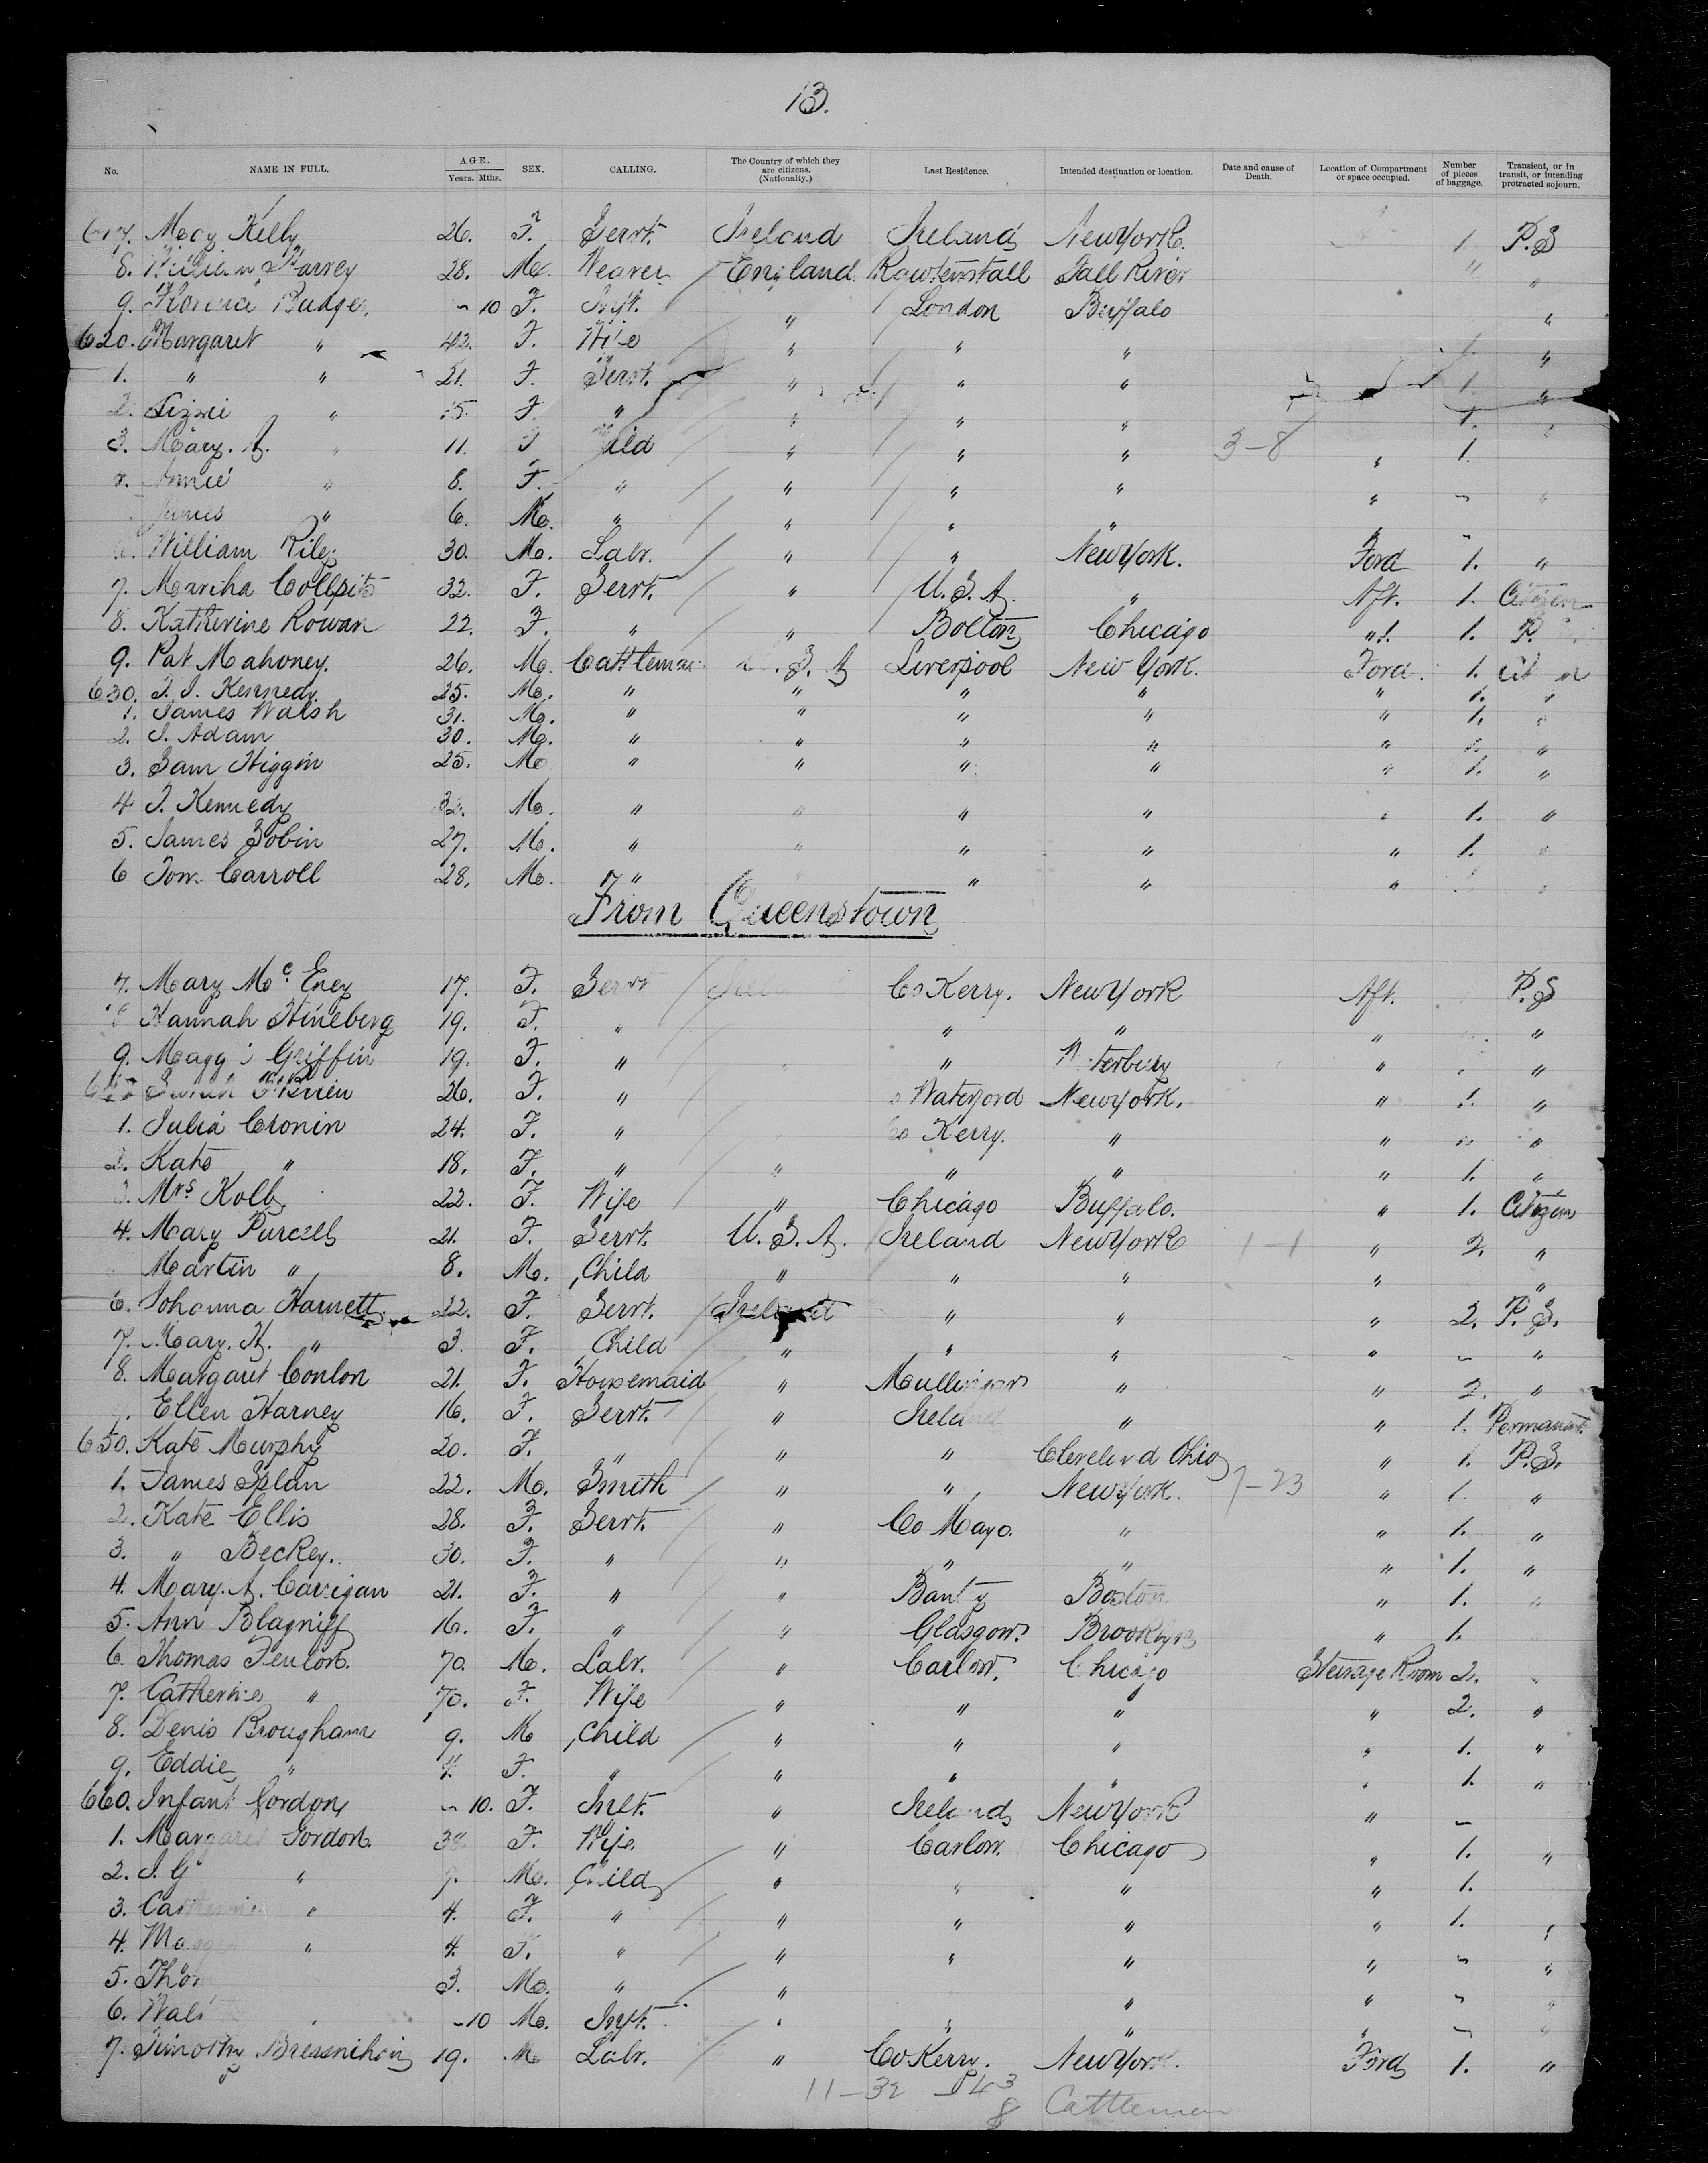 13.
No. NAME IN FULL. AGE. Years. Mths. SEX. CALLING. The Country of which they are citizens. (Nationalty.) Last Residence. Intended destination or location. Date and cause of Death. Location of Compartment or space occupied. Number of pieces of baggage. Transient, or in transit, or intending protracted sojourn.
617. Mary Kelly 26. F. Servt. Ireland Ireland New York. 1. P.S
8. William Harvey 28. M. Weaver England Rawtenstall Fall River " "
9. Florence Budge, - 10 F. Inft. " London Buffalo "
620. Margaret " 42. F. Wife " " " 1. "
1. " " 21. F. Servt. " " " 1. "
2. Lizzie " 15. F. " " " " 1. "
3. Mary. A. " 11. F Child " " " 3-8 " 1.
4. Annie " 8. F. " " " " " - "
James " 6. M. " " " " " -
6. William Riley 30. M. Labr. " " New York. Ford 1. "
7. Martha Collpits 32. F. Servt. " U.S.A. " Aft. 1. Citizen
8. Katherine Rowan 22. F. " " Bolton Chicago " 1. P.
9. Pat Mahoney. 26. M. Cattleman U.S.A Liverpool New York. Ford. 1. Citizen
630. T. J. Kennedy. 25. M. " " " " " 1. "
1. James Walsh 31. M. " " " " " 1. "
2. J. Adam 30. M. " " " " " 1. "
3. Sam Higgin 25. M " " " " " 1. "
4 J. Kennedy 32. M. " " " " " 1. "
5. James Tobin 27. M. " " " " " 1. "
6 Tom Carroll 28. M. " " " " "
From Queenstown
7. Mary McEney 17. F. Servt Co Kerry. New York Aft. P.S
8 Hannah Hineberg 19. F. " " " " "
9. Maggie Griffin 19. F. " " Waterbury " "
640 Sarah O'Brien 26. F. " Waterford New York. " 1. "
1. Julia Cronin 24. F. " Co Kerry. " " " "
2. Kate " 18. F. " " " " " 1. "
3. Mrs Kolb 22. F. Wife " Chicago Buffalo. " 1. Citizen
4. Mary Purcell 21. F. Servt. U.S.A. Ireland New York 1-1 " 2. "
Martin " 8. M. Child " " " " "
6. Johanna Harnett 22. F. Servt. Ireland " " " 2. P.S.
7. Mary. H. " 3. F. Child " " " " - "
8. Margaret Conlon 21. F. Housemaid " Mullingar " " 2. "
9. Ellen Harney 16. F. Servt. " Ireland " " 1. Permanent
650. Kate Murphy 20. F. " " " Cleveland Ohio " 1. P.S.
1. James Splan 22. M. Smith " " New York. 7-23 " 1. "
2. Kate Ellis 28. F. Servt. " Co Mayo. " " 1. "
3. " Beckey. 30. F. " " " " " 1. "
4. Mary. A. Cavigan 21. F. " " Boston " 1. "
5. Ann Blagniff 16. F. " " Glasgow. Brooklyn " 1.
6. Thomas Fenlon. 70. M. Labr. " Carlow. Chicago Steerage Room 2. "
7. Catherine " 70. F. Wife " " " " 2. "
8. Denis Brougham 9. M Child " " " " 1. "
9. Eddie " 4. F. " " " " " 1. "
660. Infant Gordon - 10. F. Inft. " Ireland New York " -
1. Margaret Gordon 38 F. Wife. " Carlow. Chicago " 1. "
2. J. G " 9. M. Child " " " " 1.
3. Catherine " 4. F. " " " " " 1. "
4. Maggie " 4. F. " " " " " - "
5. Thom 3. M. " " " " - "
6. Walt " - 10 M. Inft. " " " " - "
7. Timothy Bresnihan 19. M Labr. " Co Kerry. New York. Ford 1. "
11-32 - 43
8 Cattlemen